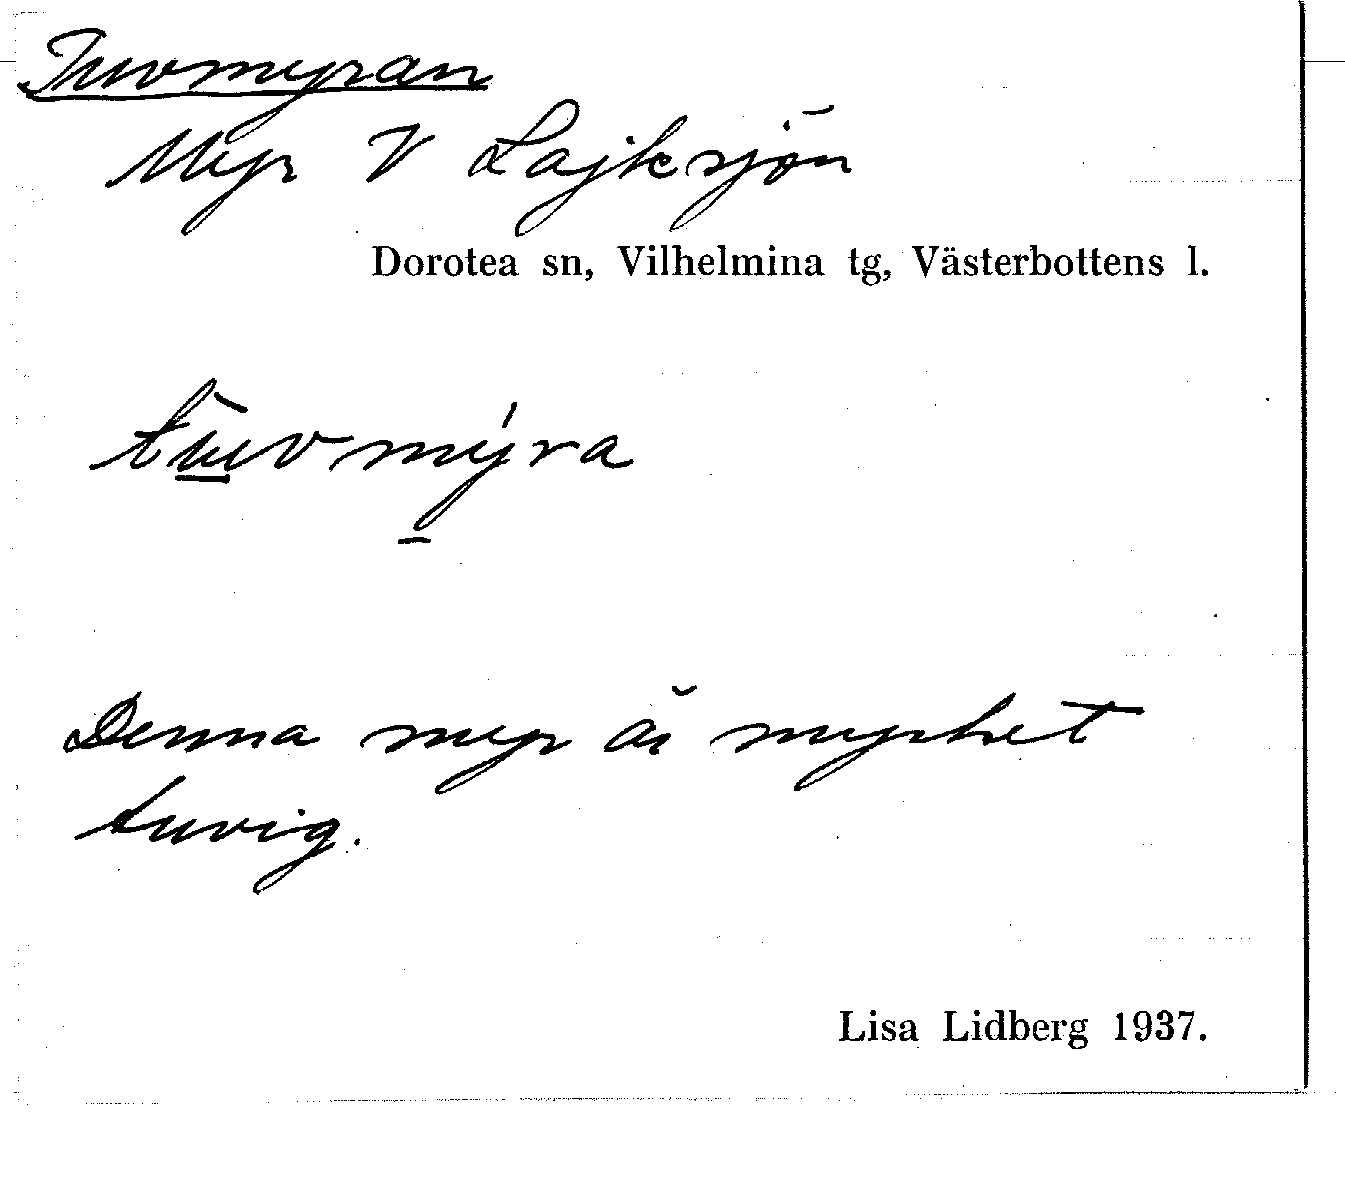 Tuvmyran
Myr V Lajksjön
Dorotea sn, Vilhelmina tg, Västerbottens l.
tùvmýra
Denna myr är mycket
tuvig.
Lisa Lidberg 1937.